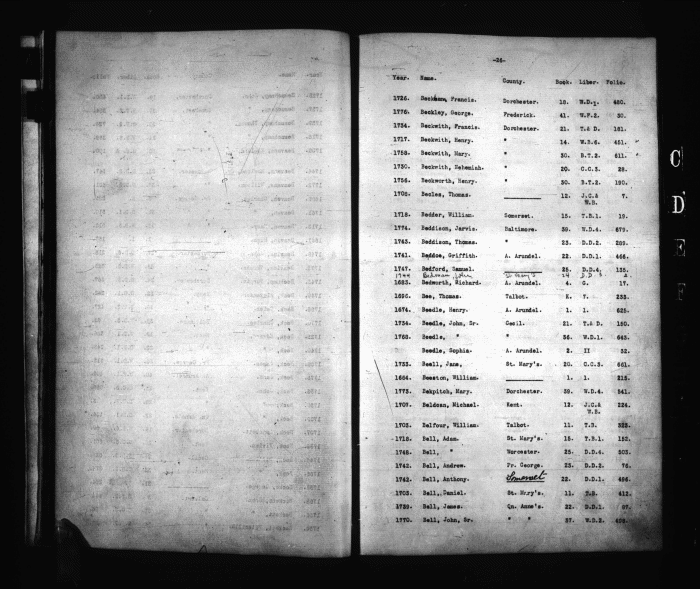 -26-
Year. Name. County. Book. Liber. Folio.
1726. Francis. Dorchester. 18. 480.
1776. Beckley, George. Frederick. 41. W.F.2. 30.
1734. Beckwith, Francis. Dorchester. 21. T.& D. 181.
1717. Beckwith, Henry. " 14. W.B.6. 451.
1758. Beckwith, Mary. " 30. B.T.2. 611.
1730. Beckwith, Nehemiah. " 20. C.C.3. 28.
1756. Beckworth, Henry. " 30. B.T.2. 190.
Thomas. 12. J.C.& 7.
W.B.
1718. Bedder, William. Somerset. 15. T.B.1. 19.
1774. Beddison, Jarvis. Baltimore. 39. W.D.4. 679.
1743. Beddison, Thomas. " 23. D.D.2. 289.
1741. Beddoe, Griffith. A. Arundel. 22. D.D.1. 466.
1747. Bedford, Samuel. 25. D.D.4. 135.
1744 John St Mary's 24 D.D
1683. Bedworth, Richard. A. Arundel. 4. G. 17.
1696. Bee, Thomas. Talbot. K. 7. 233.
1674. Beedle, Henry. A. Arundel. 1. 1. 625.
1734. Beedle, John, Sr. Cecil. 21. T.& D. 160.
1768. Beedle, " " 36. W.D.1. 643.
Beedle, Sophia. A. Arundel. 2. II 32.
1733. Beell, Jane, St. Mary's. 20. C.C.3. 661.
1664. Beeston, William. 1. 1. 213.
1773. Bekpitch, Mary. Dorchester. 39. W.D.4. 541.
1707. Beldean, Michael. Kent. 12. J.C.& 224.
W.B.
1703. Belfour, William. Talbot. 11. T.B. 323.
1718. Bell, Adam. St. Mary's. 15. T.B.1. 152.
1748. Bell, " Worcester. 25. D.D.4. 503.
1742. Bell, Andrew. Pr. George. 23. D.D.2. 76.
1742. Bell, Anthony. Somerset 22. D.D.1. 486.
1703. Bell, Daniel. St. Mary's. 11. T.B. 412.
1739. Bell, James. Qn. Anne's. 22. D.D.1. 67.
1770. Bell, John, Sr. " " 37. W.D.2.
C
D
E
F